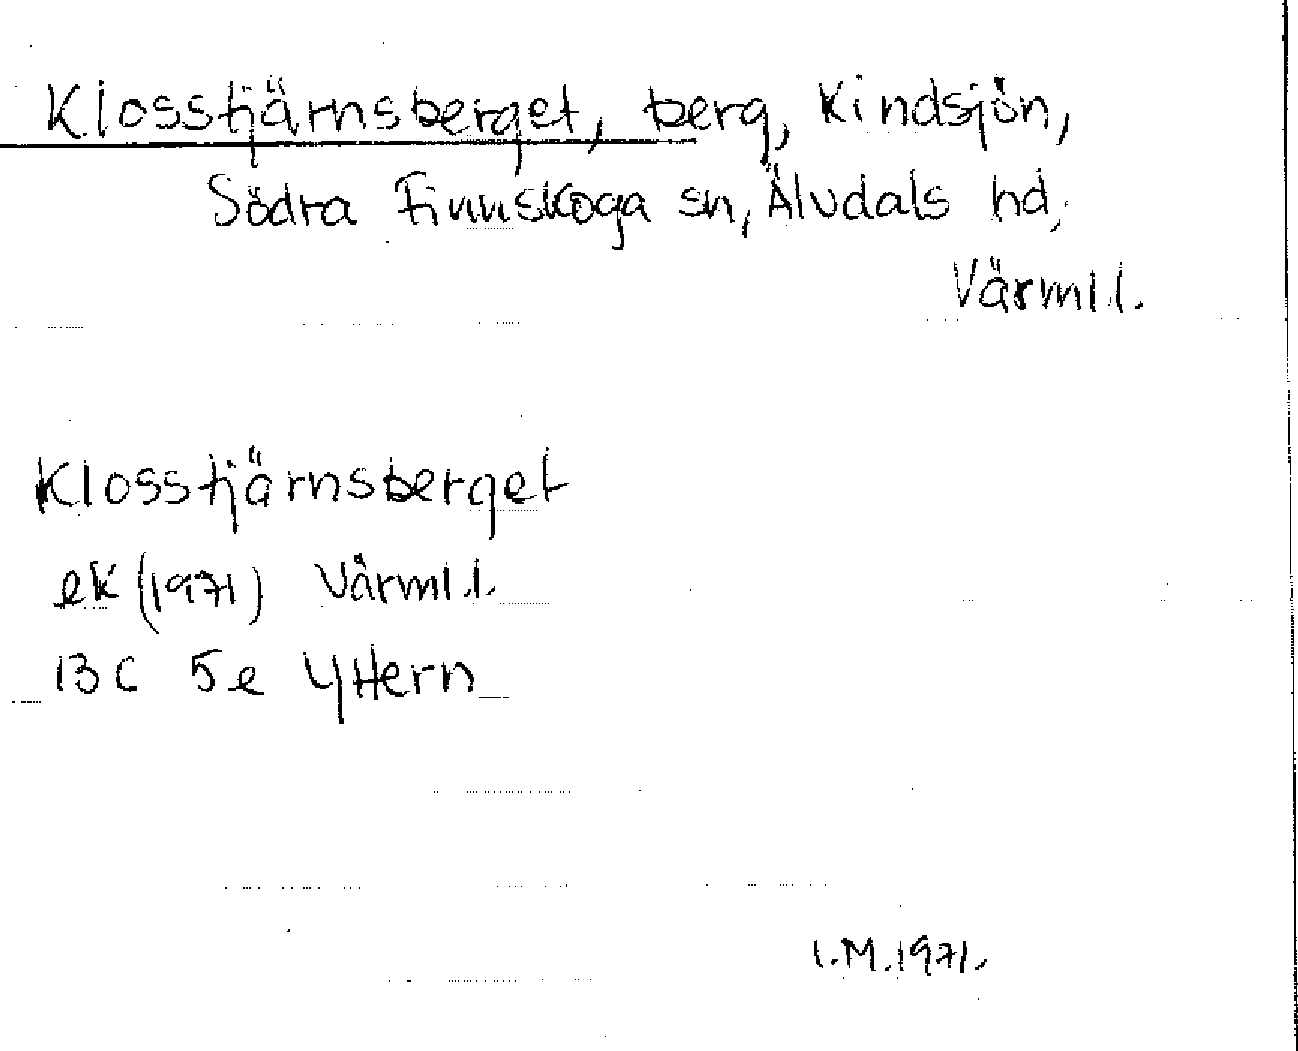 Klosstjärnsberget, berg, Kindsjön,
Södra Finnskoga sn, Älvdals hd,
Värml.l.
Klosstjärnsberget
ek (1971) Värml.l.
13C 5e Yttern
I.M.1971.